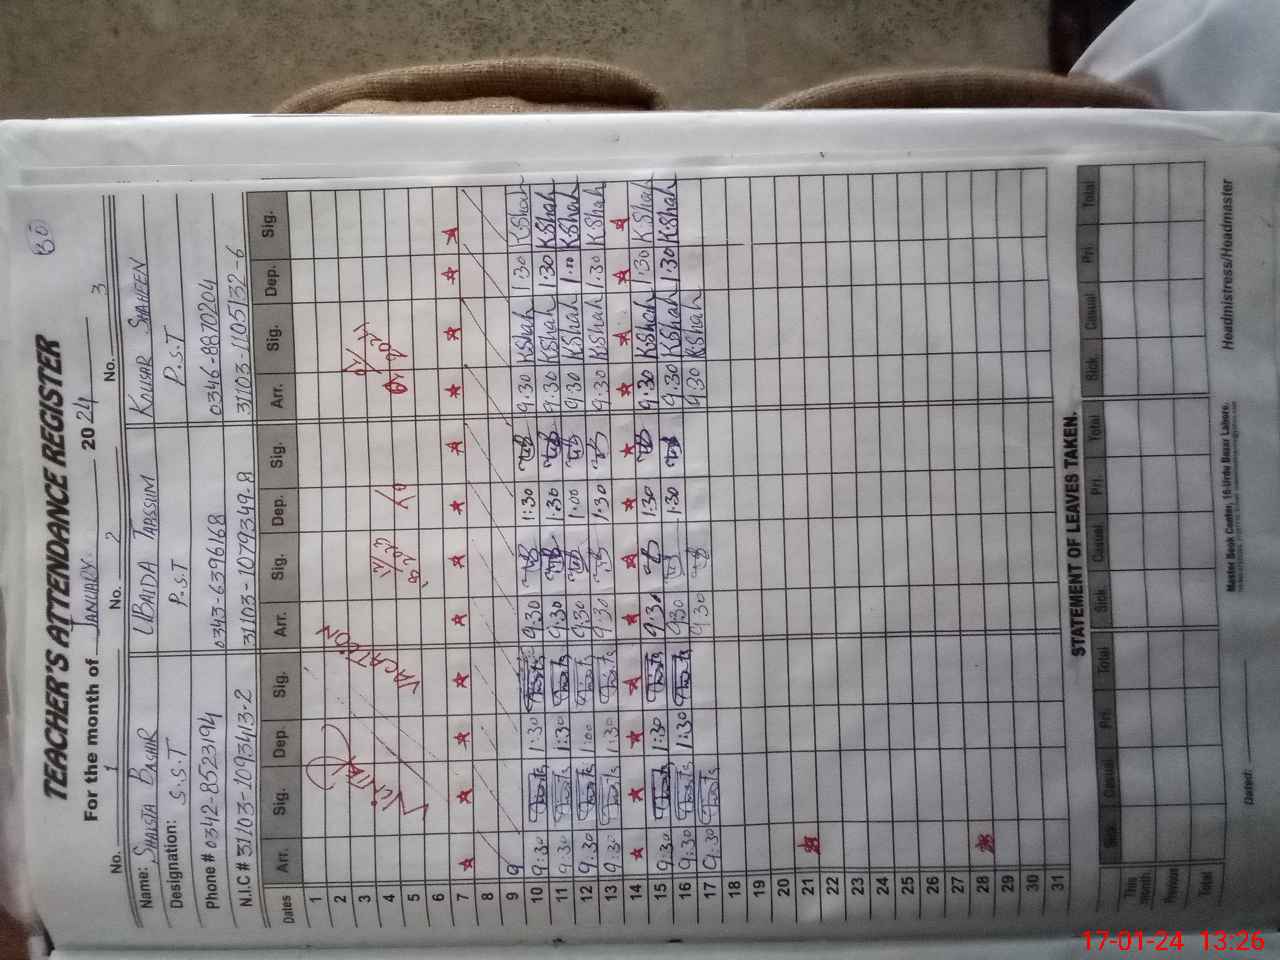 30
TEACHER'S ATTENDANCE REGISTER
For the month of JANUARY 2024
No. 1 No. 2 No. 3
Name: SHAISTA BASHIR UBAIDA TABSSUM KOUSAR SHAHEEN
Designation: S.S.T P.S.T P.S.T
Phone # 0342-8523194 0343-6396168 0346-8870204
N.I.C # 31103-1093413-2 31103-1079349-8 31103-1105132-6
Dates Arr. Sig. Dep. Sig. Arr. Sig. Dep. Sig. Arr. Sig. Dep. Sig.
1
2
3
4
5
WINTER VACATION
6
7
8
9 9
10 9:30 1:30 9:30 1:30 9:30 KShah 1:30 KShah
11 9:30 1:30 9:30 1:30 9:30 KShah 1:30 KShah
12 9:30 1:00 9:30 1:00 9:30 KShah 1:00 KShah
13 9:30 1:30 9:30 1:30 9:30 KShah 1:30 KShah
14
15 9:30 1:30 9:30 1:30 9:30 KShah 1:30 KShah
16 9:30 1:30 9:30 1:30 9:30 KShah 1:30 KShah
17 9:30 9:30 9:30 KShah
18
19
20
21
22
23
24
25
26
27
28
29
30
31
STATEMENT OF LEAVES TAKEN.
Sick Casual Pri. Total Sick Casual Pri. Total Sick Casual Pri. Total
This month
Previous
Total
Dated:
Master Book Center, 16-Urdu Bazar Lahore.
Headmistress/Headmaster
17-01-24 13:26